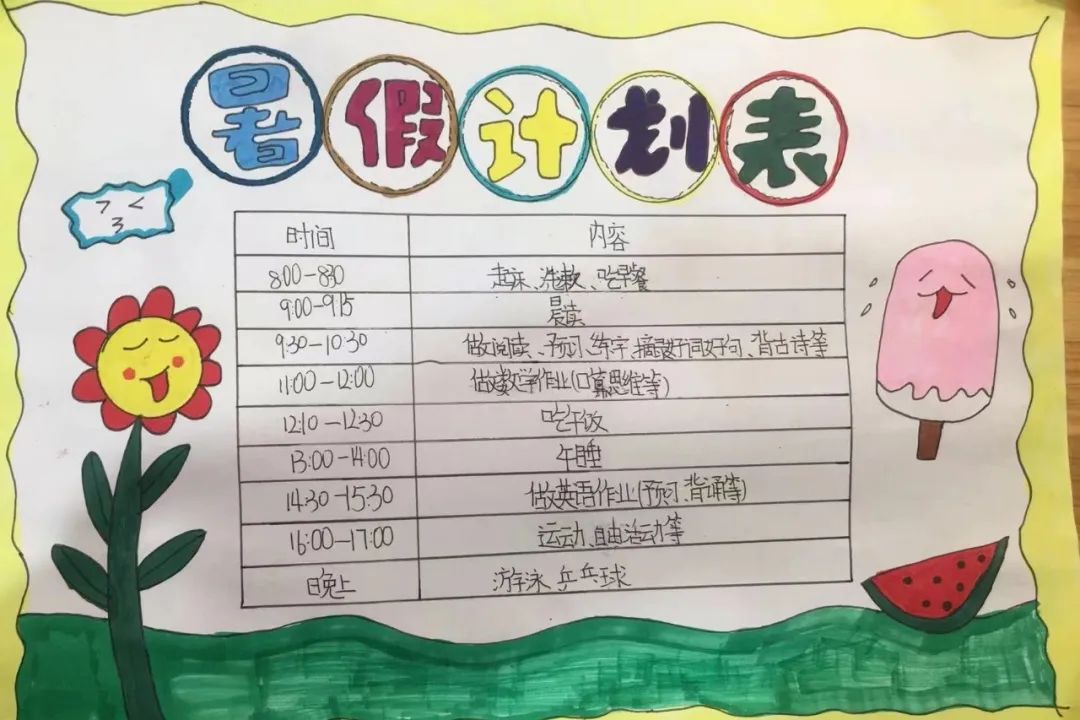 暑假计划表
时间 内容
8:00-8:30 起床、洗漱、吃早餐
9:00-9:15 晨读
9:30-10:30 做阅读、预习、练字、摘录好词好句、背古诗等
11:00-12:00 做数学作业(口算思维等)
12:10-12:30 吃午饭
13:00-14:00 午睡
14:30-15:30 做英语作业(预习、背诵等)
16:00-17:00 运动、自由活动等
晚上 游泳、乒乓球